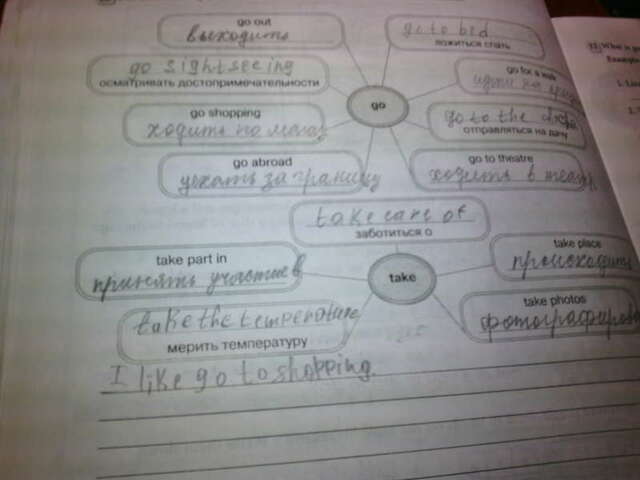 go out
выходить
go to bed
ложиться спать
go sightseeing
осматривать достопримечательности
go for a walk
go
go shopping
ходить по мага
go to the
отправляться на дачу
go abroad
уехать за границу
go to theatre
ходить в театр
take care of
заботиться о
take part in
принять участие в
take place
происходить
take
take the temperature
мерить температуру
take photos
фотографирова
I like go to shopping